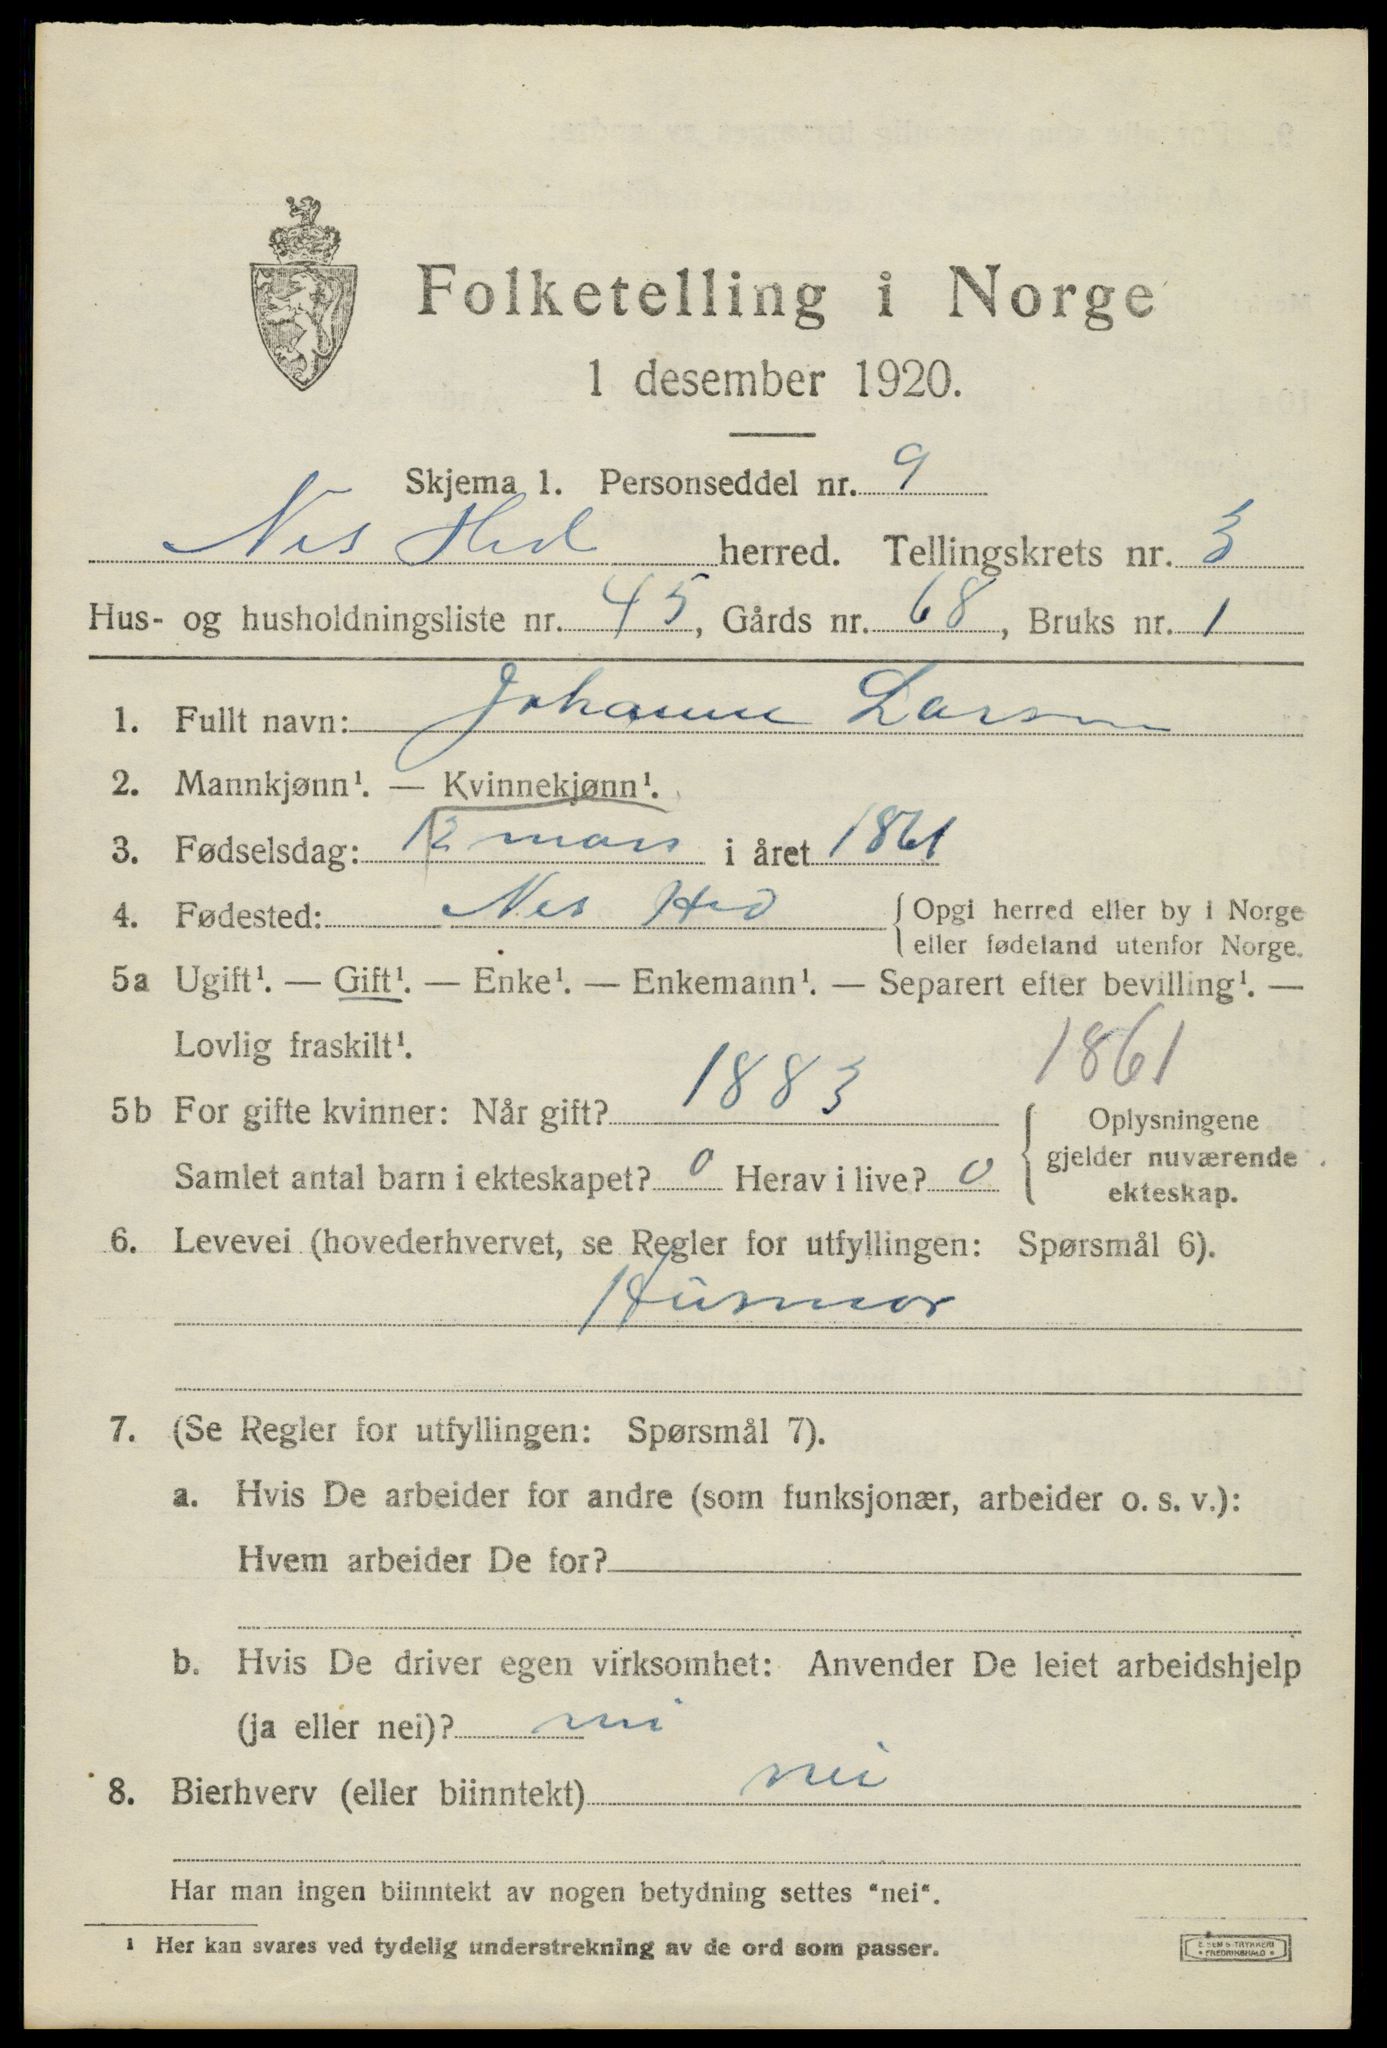 Folketelling i Norge
1 desember 1920.
Skjema 1. Personseddel nr. 9
Nes Hed herred. Tellingskrets nr. 3
Hus- og husholdningsliste nr. 45, Gårds nr. 68, Bruks nr. 1
1. Fullt navn: Johanne Larsen
2. Mannkjønn¹. — Kvinnekjønn¹.
3. Fødselsdag: 12 mars i året 1861
4. Fødested: Nes Hed { Opgi herred eller by i Norge
eller fødeland utenfor Norge.
5a Ugift¹. — Gift¹. — Enke¹. — Enkemann¹. — Separert efter bevilling¹. —
Lovlig fraskilt¹.
1861
5b For gifte kvinner: Når gift? 1883
Samlet antal barn i ekteskapet? 0 Herav i live? 0
{ Oplysningene
gjelder nuværende
ekteskap.
6. Levevei (hovederhvervet, se Regler for utfyllingen: Spørsmål 6).
Husmor
7. (Se Regler for utfyllingen: Spørsmål 7).
a. Hvis De arbeider for andre (som funksjonær, arbeider o. s. v.):
Hvem arbeider De for?
b. Hvis De driver egen virksomhet: Anvender De leiet arbeidshjelp
(ja eller nei)? nei
8. Bierhverv (eller biinntekt) nei
Har man ingen biinntekt av nogen betydning settes "nei".
¹ Her kan svares ved tydelig understrekning av de ord som passer.
TRYKKERI
FREDRIKSHALD